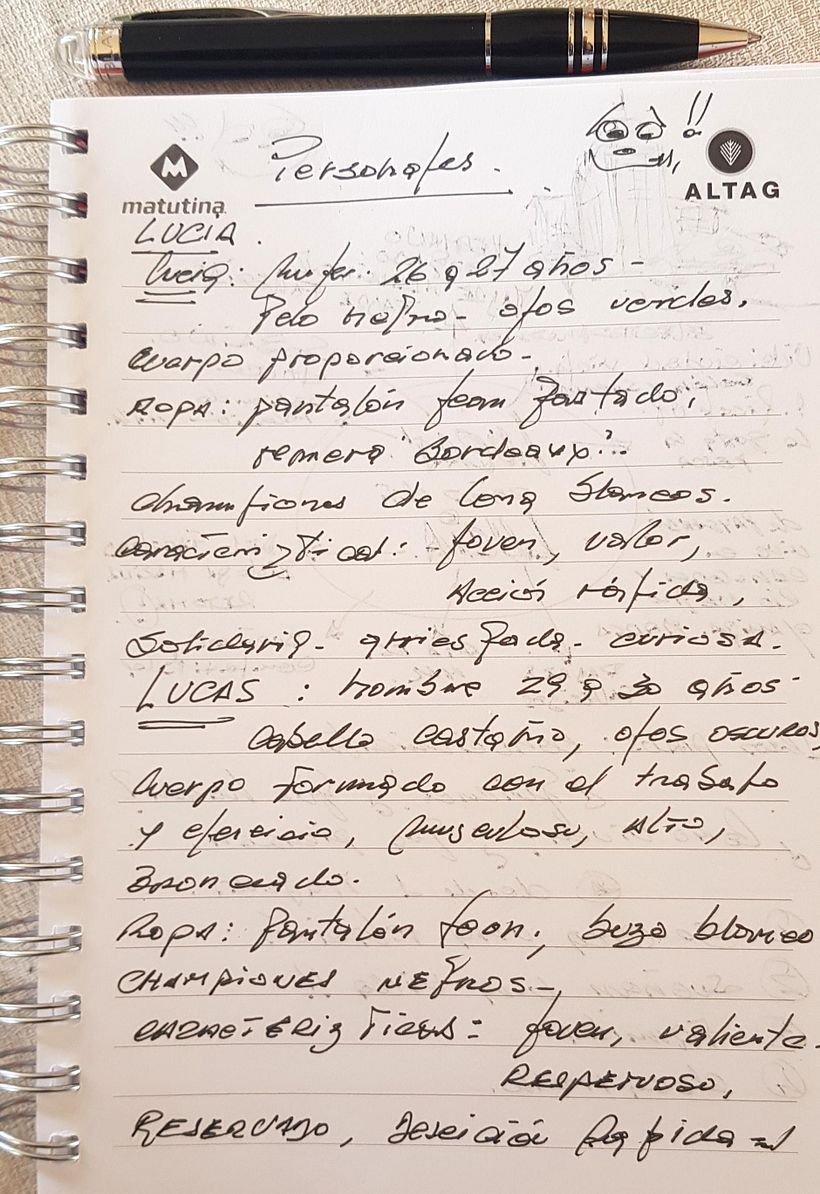 Personajes.
!!
M
matutina
ALTAG
LUCIA.
Lucia: Mujer. 26 a 27 años -
Pelo negro - ojos verdes.
Cuerpo proporcionado -
Ropa: pantalón jean gastado,
remera "Bordeaux".
championes de lona blancos.
Caracterizticas: - joven, valor,
Acción rápida,
Solidaria - arriesgada - curiosa.
LUCAS : hombre 29 a 30 años -
Cabello castaño, ojos oscuros,
Cuerpo formado con el trabajo
y ejercicio, musculoso, Alto,
Bronceado.
Ropa: Pantalón jean, buzo blanco
CHAMPIONES NEGROS -
CARACTERIZTICAS: joven, valiente.
RESPETUOSO,
RESERVADO, Deseición Rapida